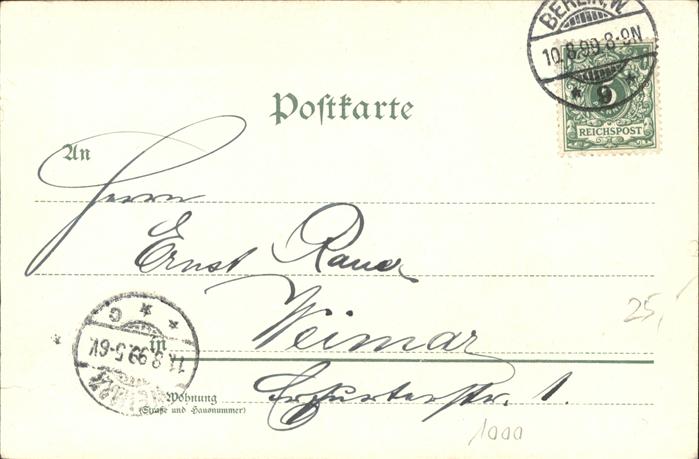 BERLIN. W.
10.8.99.8-9N
5
REICHSPOST
Postkarte
An
Herrn
Ernst
Weimar
in
11.8.99.5-6V.
G
Wohnung
(Straße und Hausnummer)
Erfurterstr. 1.
25,-
1000